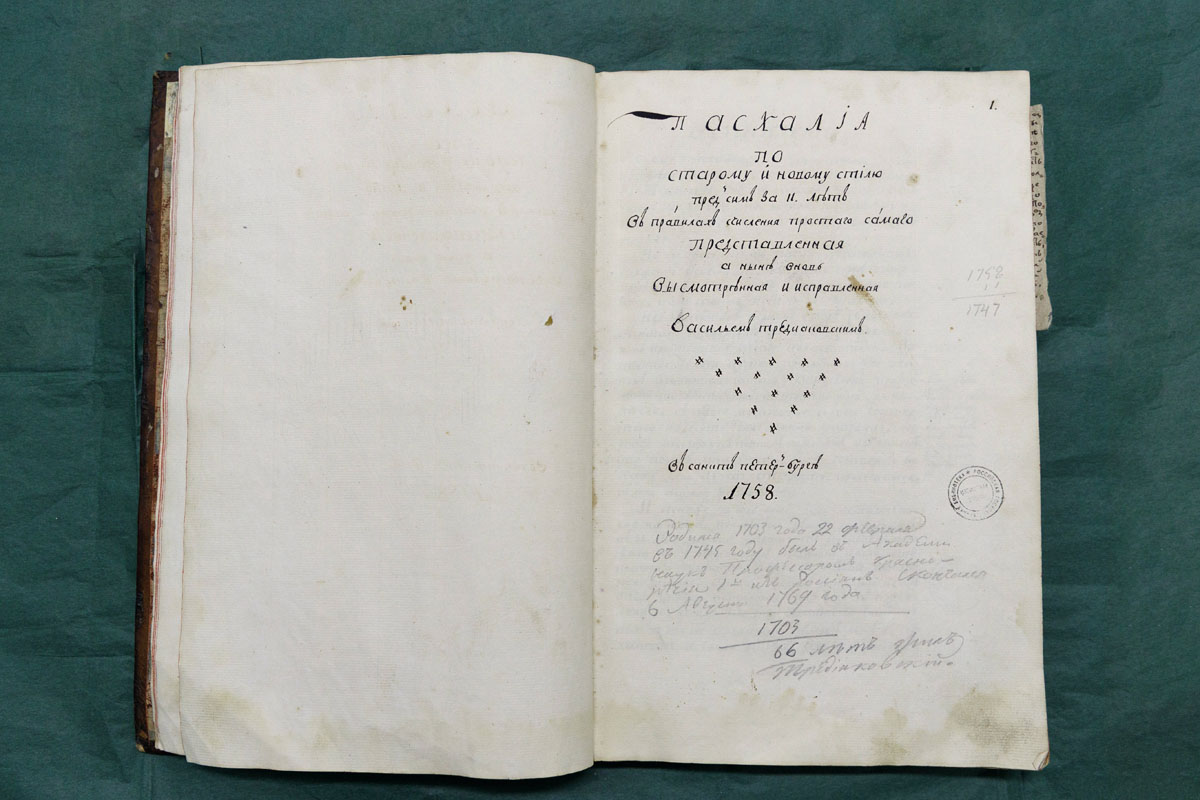 1.
ПАСХАЛІА
ПО
старому й новому стілю
предъ симъ За 11. лѣтъ
Въ правилахъ счисления простаго самаго
Представленная
а нынѣ вновь
Высмотрѣнная и исправленная
Васильемъ тредиаковскимъ.
1758
11
1747
Въ санктъ петеръ-бургѣ
1758.
Родился 1703 года 22 февраля
въ 1745 году былъ въ Академіи
наукъ Профессоромъ
1й изъ Россіянъ скончался
6 Августа 1769 года
1703
66 лѣтъ жилъ
Тредіаковскій.